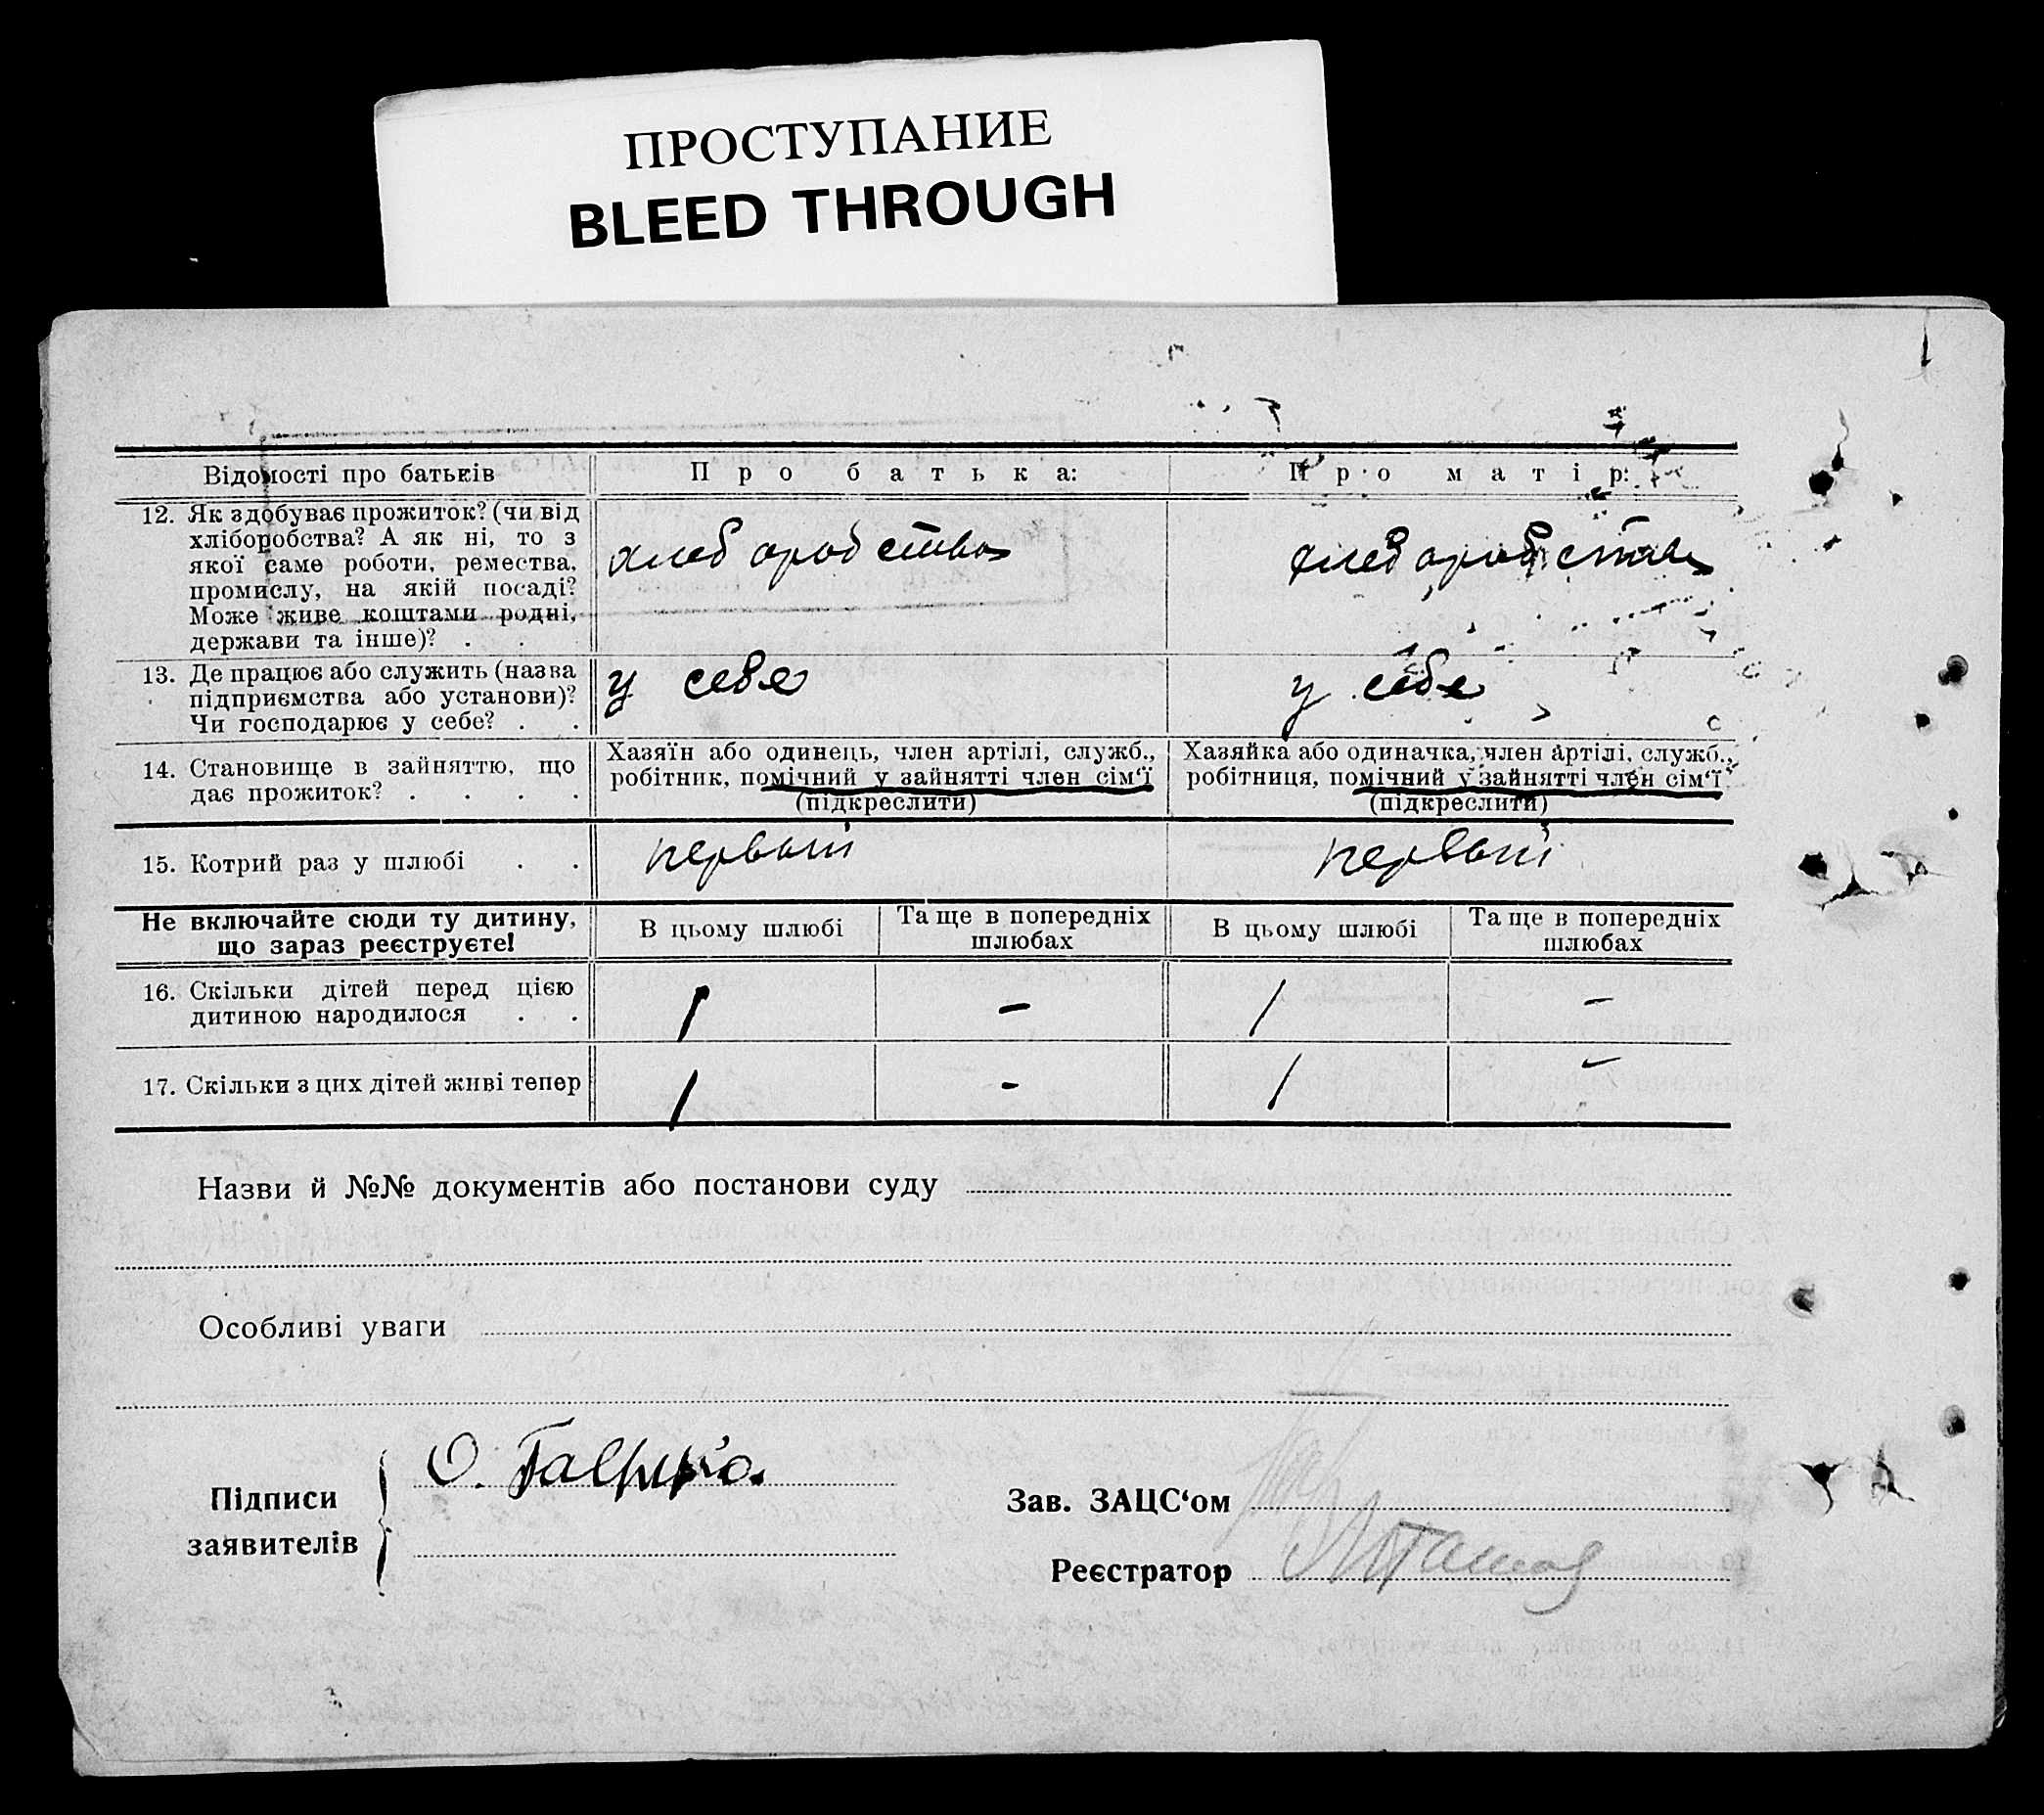 ПРОСТУПАНИЕ
BLEED THROUGH
Відомості про батьків
Про батька:
Про матір:
12. Як здобуває прожиток? (чи від
хліборобства? А як ні, то з
якої саме роботи, ремества,
промислу, на якій посаді?
Може живе коштами родні,
держави та інше)? . .
хлеборобство
хлеборобство
13. Де працює або служить (назва
підприємства або установи)?
Чи господарює у себе? . .
у себе
у себе
14. Становище в зайняттю, що
дає прожиток? . . . .
Хазяїн або одинець, член артілі, служб.,
робітник, помічний у зайнятті член сім‘ї
(підкреслити)
Хазяйка або одиначка, член артілі, служб.,
робітниця, помічний у зайнятті член сім‘ї
(підкреслити)
15. Котрий раз у шлюбі . .
первый
первый
Не включайте сюди ту дитину,
що зараз реєструєте!
В цьому шлюбі
Та ще в попередніх
шлюбах
В цьому шлюбі
Та ще в попередніх
шлюбах
16. Скільки дітей перед цією
дитиною народилося . .
1 - 1 -
17. Скільки з цих дітей живі тепер
1 - 1 -
Назви й №№ документів або постанови суду
Особливі уваги
Підписи
заявителів
О. Гаврика
Зав. ЗАЦС‘ом
Реєстратор